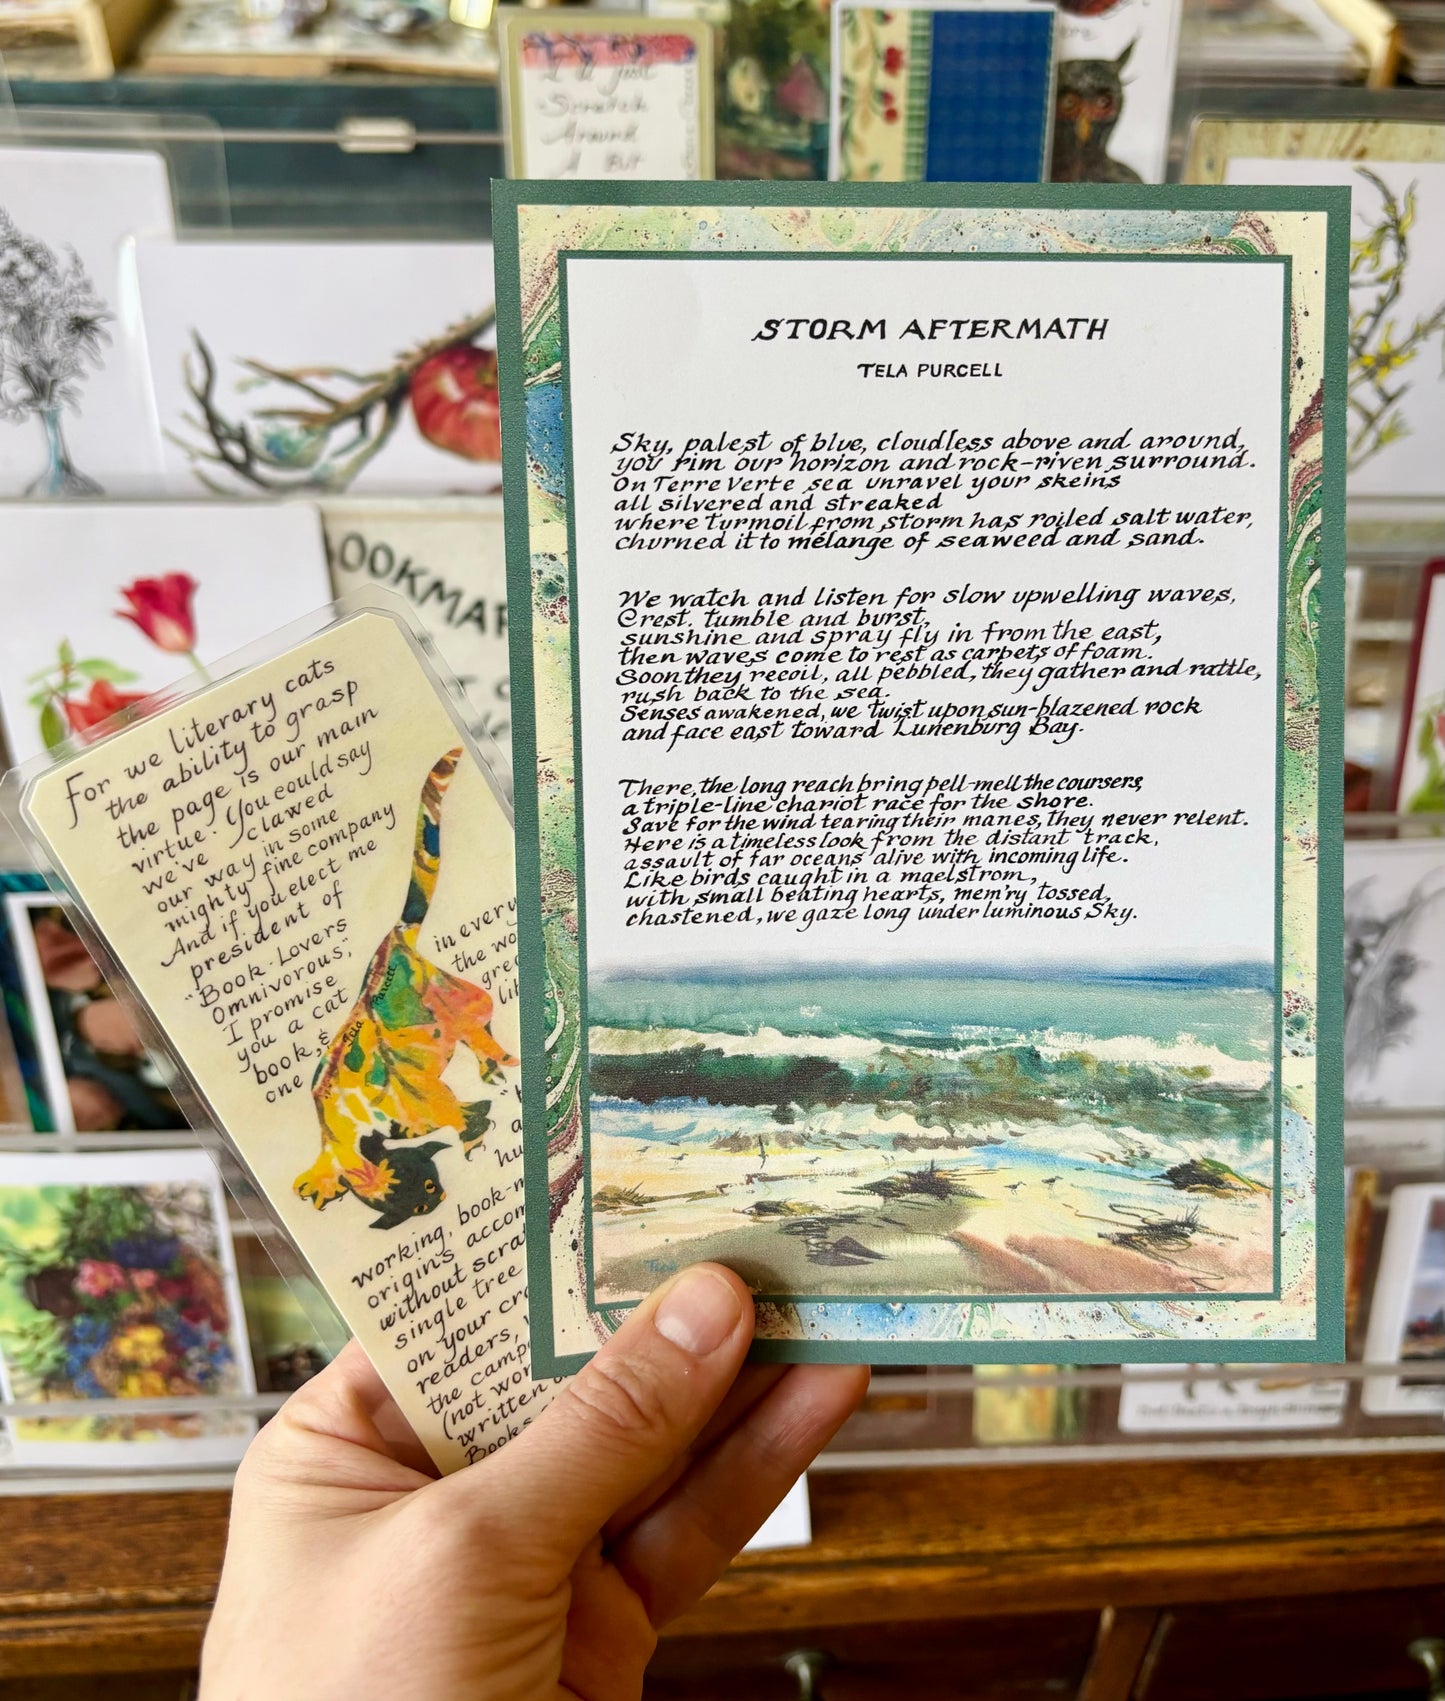 It is just
Scratch
Around
A Bit
OOKMAR
STORM AFTERMATH
TELA PURCELL
Sky, palest of blue, cloudless above and around,
you rim our horizon and rock-riven surround.
On Terre Verte sea unravel your skeins
all silvered and streaked
where turmoil from storm has roiled salt water,
churned it to mélange of seaweed and sand.
We watch and listen for slow upwelling waves,
Crest, tumble and burst,
sunshine and spray fly in from the east,
then waves come to rest as carpets of foam.
Soon they recoil, all pebbled, they gather and rattle,
rush back to the sea.
Senses awakened, we twist upon sun-blazened rock
and face east toward Lunenburg Bay.
There, the long reach bring pell-mell the coursers,
a triple-line chariot race for the shore.
Save for the wind tearing their manes, they never relent.
Here is a timeless look from the distant track,
assault of far oceans alive with incoming life.
Like birds caught in a maelstrom,
with small beating hearts, mem'ry tossed,
chastened, we gaze long under luminous Sky.
For we literary cats
the ability to grasp
the page is our main
virtue. (You could say
we've clawed
our way in some
mighty fine company
And if you elect me
president of
"Book-Lovers
Omnivorous,"
I promise
you a cat
book, &
one
Tela Purcell
in every
the wo
grea
lit
working, book-m
origin's accom
without scra
single tree
on your cr
readers,
the camp
(not wor
written
Books